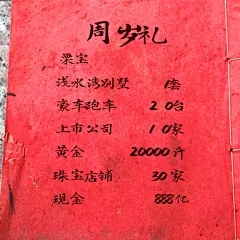 周岁礼
梁宝
浅水湾别墅 1套
豪车跑车 20台
上市公司 10家
黄金 20000斤
珠宝店铺 30家
现金 888亿